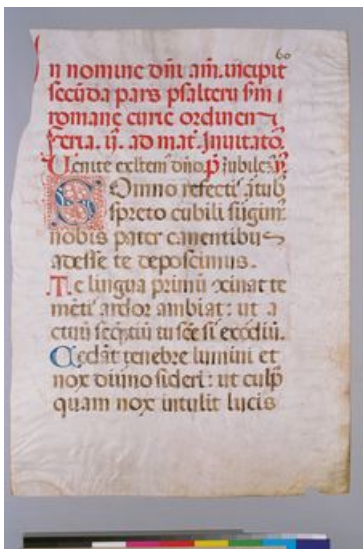 60
In nomine dñi am̃. incipit
secũda pars psalterii sm̃ i
romane curie ordinem
feria. ij. ad mat. Inuitato.
Uenite exltem dño. p̃ iubilez. ij.
Somno refecti artub
spreto cubili surgim
nobis pater canentibus
adesse te deposcimus.
Te lingua primũ concinat te
mẽti ardor ambiat: ut a
ctuũ sequẽtiũ tu sc̃e sis exordiũ.
Cedãt tenebre lumini et
nox diurno sideri: ut culp
quam nox intulit lucis